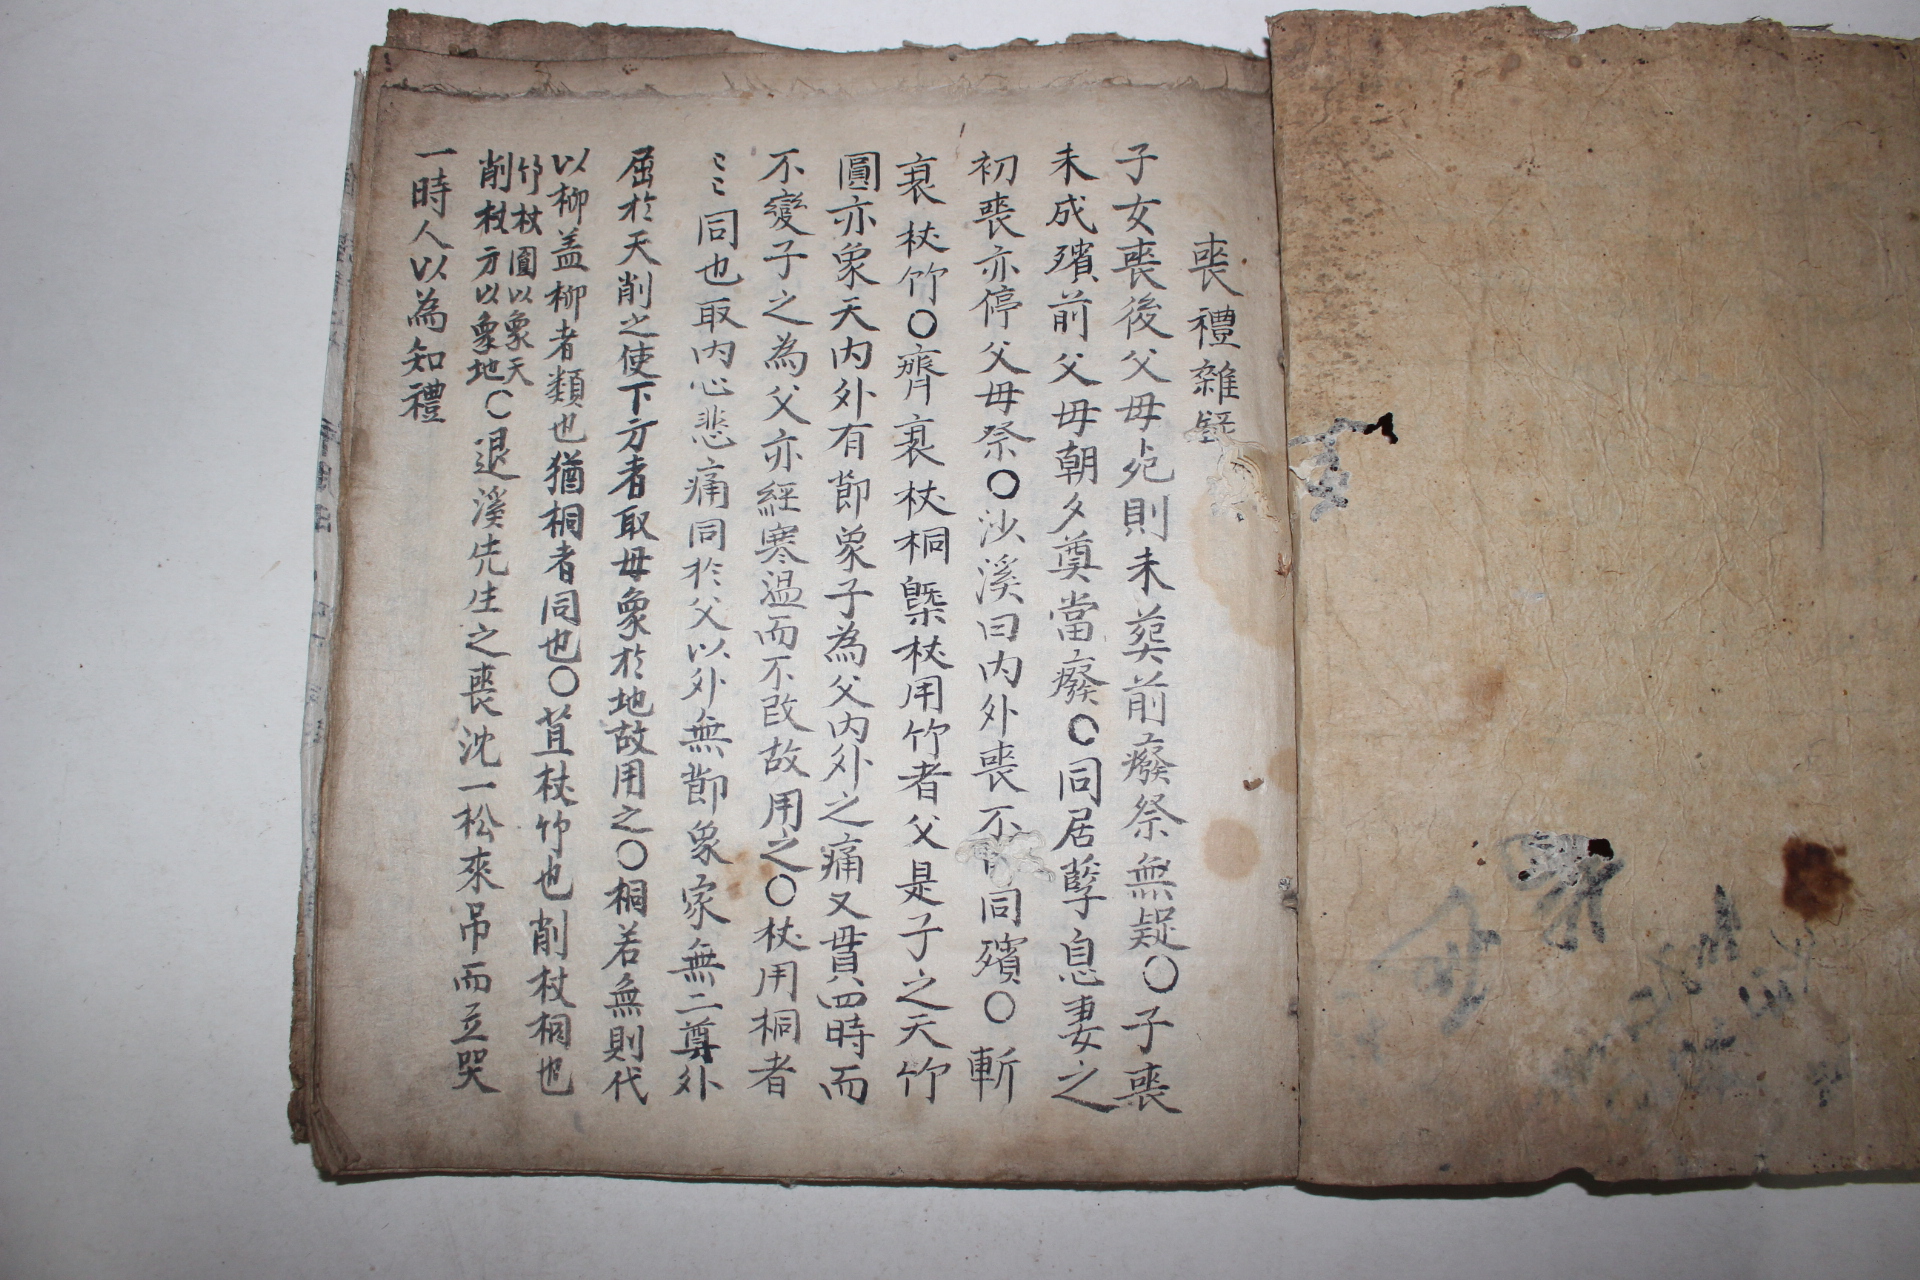 喪禮雜疑
子女喪後父母死則未葬前廢祭無疑〇子喪
未成殯前父母朝夕奠當廢〇同居孽息妻之
初喪亦停父母祭〇沙溪曰內外喪不同殯〇斬
衰杖竹〇齊衰杖桐槩杖用竹者父是子之天竹
圓亦象天內外有節象子為父內外之痛又貫四時而
不變子之為父亦經寒溫而不改故用之〇杖用桐者
〻〻同也取內心悲痛同於父以外無節象家無二尊外
屈於天削之使下方者取母象於地故用之〇桐若無則代
以柳盖柳者類也猶桐者同也〇苴杖竹也削杖桐也
竹杖圓以象天
削杖方以象地〇退溪先生之喪沈一松來吊而立哭
一時人以為知禮